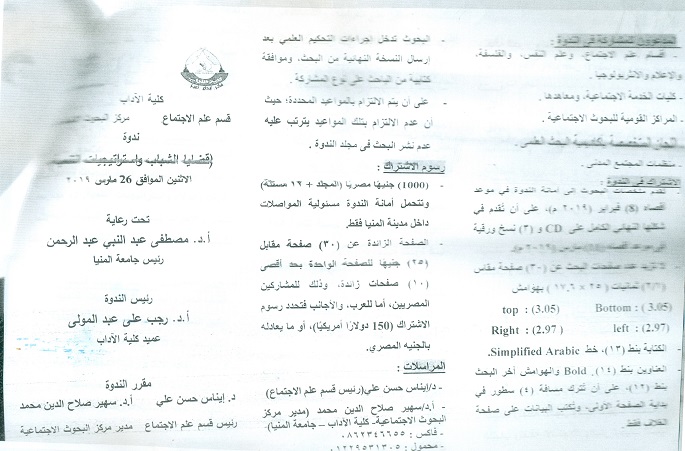 المدعوون للمشاركة في الندوة :
- أقسام علم الاجتماع، وعلم النفس، والفلسفة،
والإعلام والأنثربولوجيا .
- كليات الخدمة الاجتماعية، ومعاهدها .
- المراكز القومية للبحوث الاجتماعية .
المتخصصة بأكاديمية البحث العلمي .
- منظمات المجتمع المدني
الاشتراك في الندوة :
- تقدم ملخصات البحوث إلى أمانة الندوة في موعد
أقصاه (8) فبراير (٢٠١٩ م)، على أن تقدم في
شكلها النهائي الكامل على CD و (٣) نسخ ورقية
في موعد أقصاه مارس ٢٠١٩ م.
- لا تزيد عدد صفحات البحث عن (٣٠) صفحة مقاس
(٢٥ × ١٧,٦) بهوامش
top : (3.05) Bottom : (3.05)
Right : (2.97) left : (2.97)
- الكتابة بنط (١٣)، خط Simplified Arabic.
- العناوين بنط (١٤), Bold والهوامش آخر البحث
بنط (١٢)، على أن تترك مسافة (٤) سطور في
بداية الصفحة الأولى، وتكتب البيانات على صفحة
الغلاف فقط.
- البحوث تدخل إجراءات التحكيم العلمي بعد
إرسال النسخة النهائية من البحث، وموافقة
كتابية من الباحث على نوع المشاركة .
- على أن يتم الالتزام بالمواعيد المحددة؛ حيث
أن عدم الالتزام بتلك المواعيد يترتب عليه
عدم نشر البحث في مجلد الندوة .
رسوم الاشتراك :
- (1000) جنيهًا مصريًا (المجلد + ١٢ مستلة)
وتتحمل أمانة الندوة مسئولية المواصلات
داخل مدينة المنيا فقط.
- الصفحة الزائدة عن (٣٠) صفحة مقابل
(٢٥) جنيهًا للصفحة الواحدة بحد أقصى
(١٠) صفحات زائدة، وذلك للمشاركين
المصريين، أما للعرب، والأجانب فتحدد رسوم
الاشتراك (150 دولارًا أمريكيًا)، أو ما يعادله
بالجنيه المصري.
المراسلات :
- د/إيناس حسن علي(رئيس قسم علم الاجتماع)
- أ.د/سهير صلاح الدين محمد (مدير مركز
البحوث الاجتماعية- كلية الآداب – جامعة المنيا)
- فاكس : ٠٨٦٢٣٤٦٦٥٥
- محمول : ٠١٢٢٩٥٣١٣٠٥
كلية الآداب
قسم علم الاجتماع مركز البحوث
ندوة
(قضايا الشباب واستراتيجيات
الاثنين الموافق 26 مارس ٢٠١٩
تحت رعاية
أ.د. مصطفى عبد النبي عبد الرحمن
رئيس جامعة المنيا
رئيس الندوة
أ.د. رجب على عبد المولى
عميد كلية الآداب
مقرر الندوة
د. إيناس حسن علي أ.د. سهير صلاح الدين محمد
رئيس قسم علم الاجتماع مدير مركز البحوث الاجتماعية